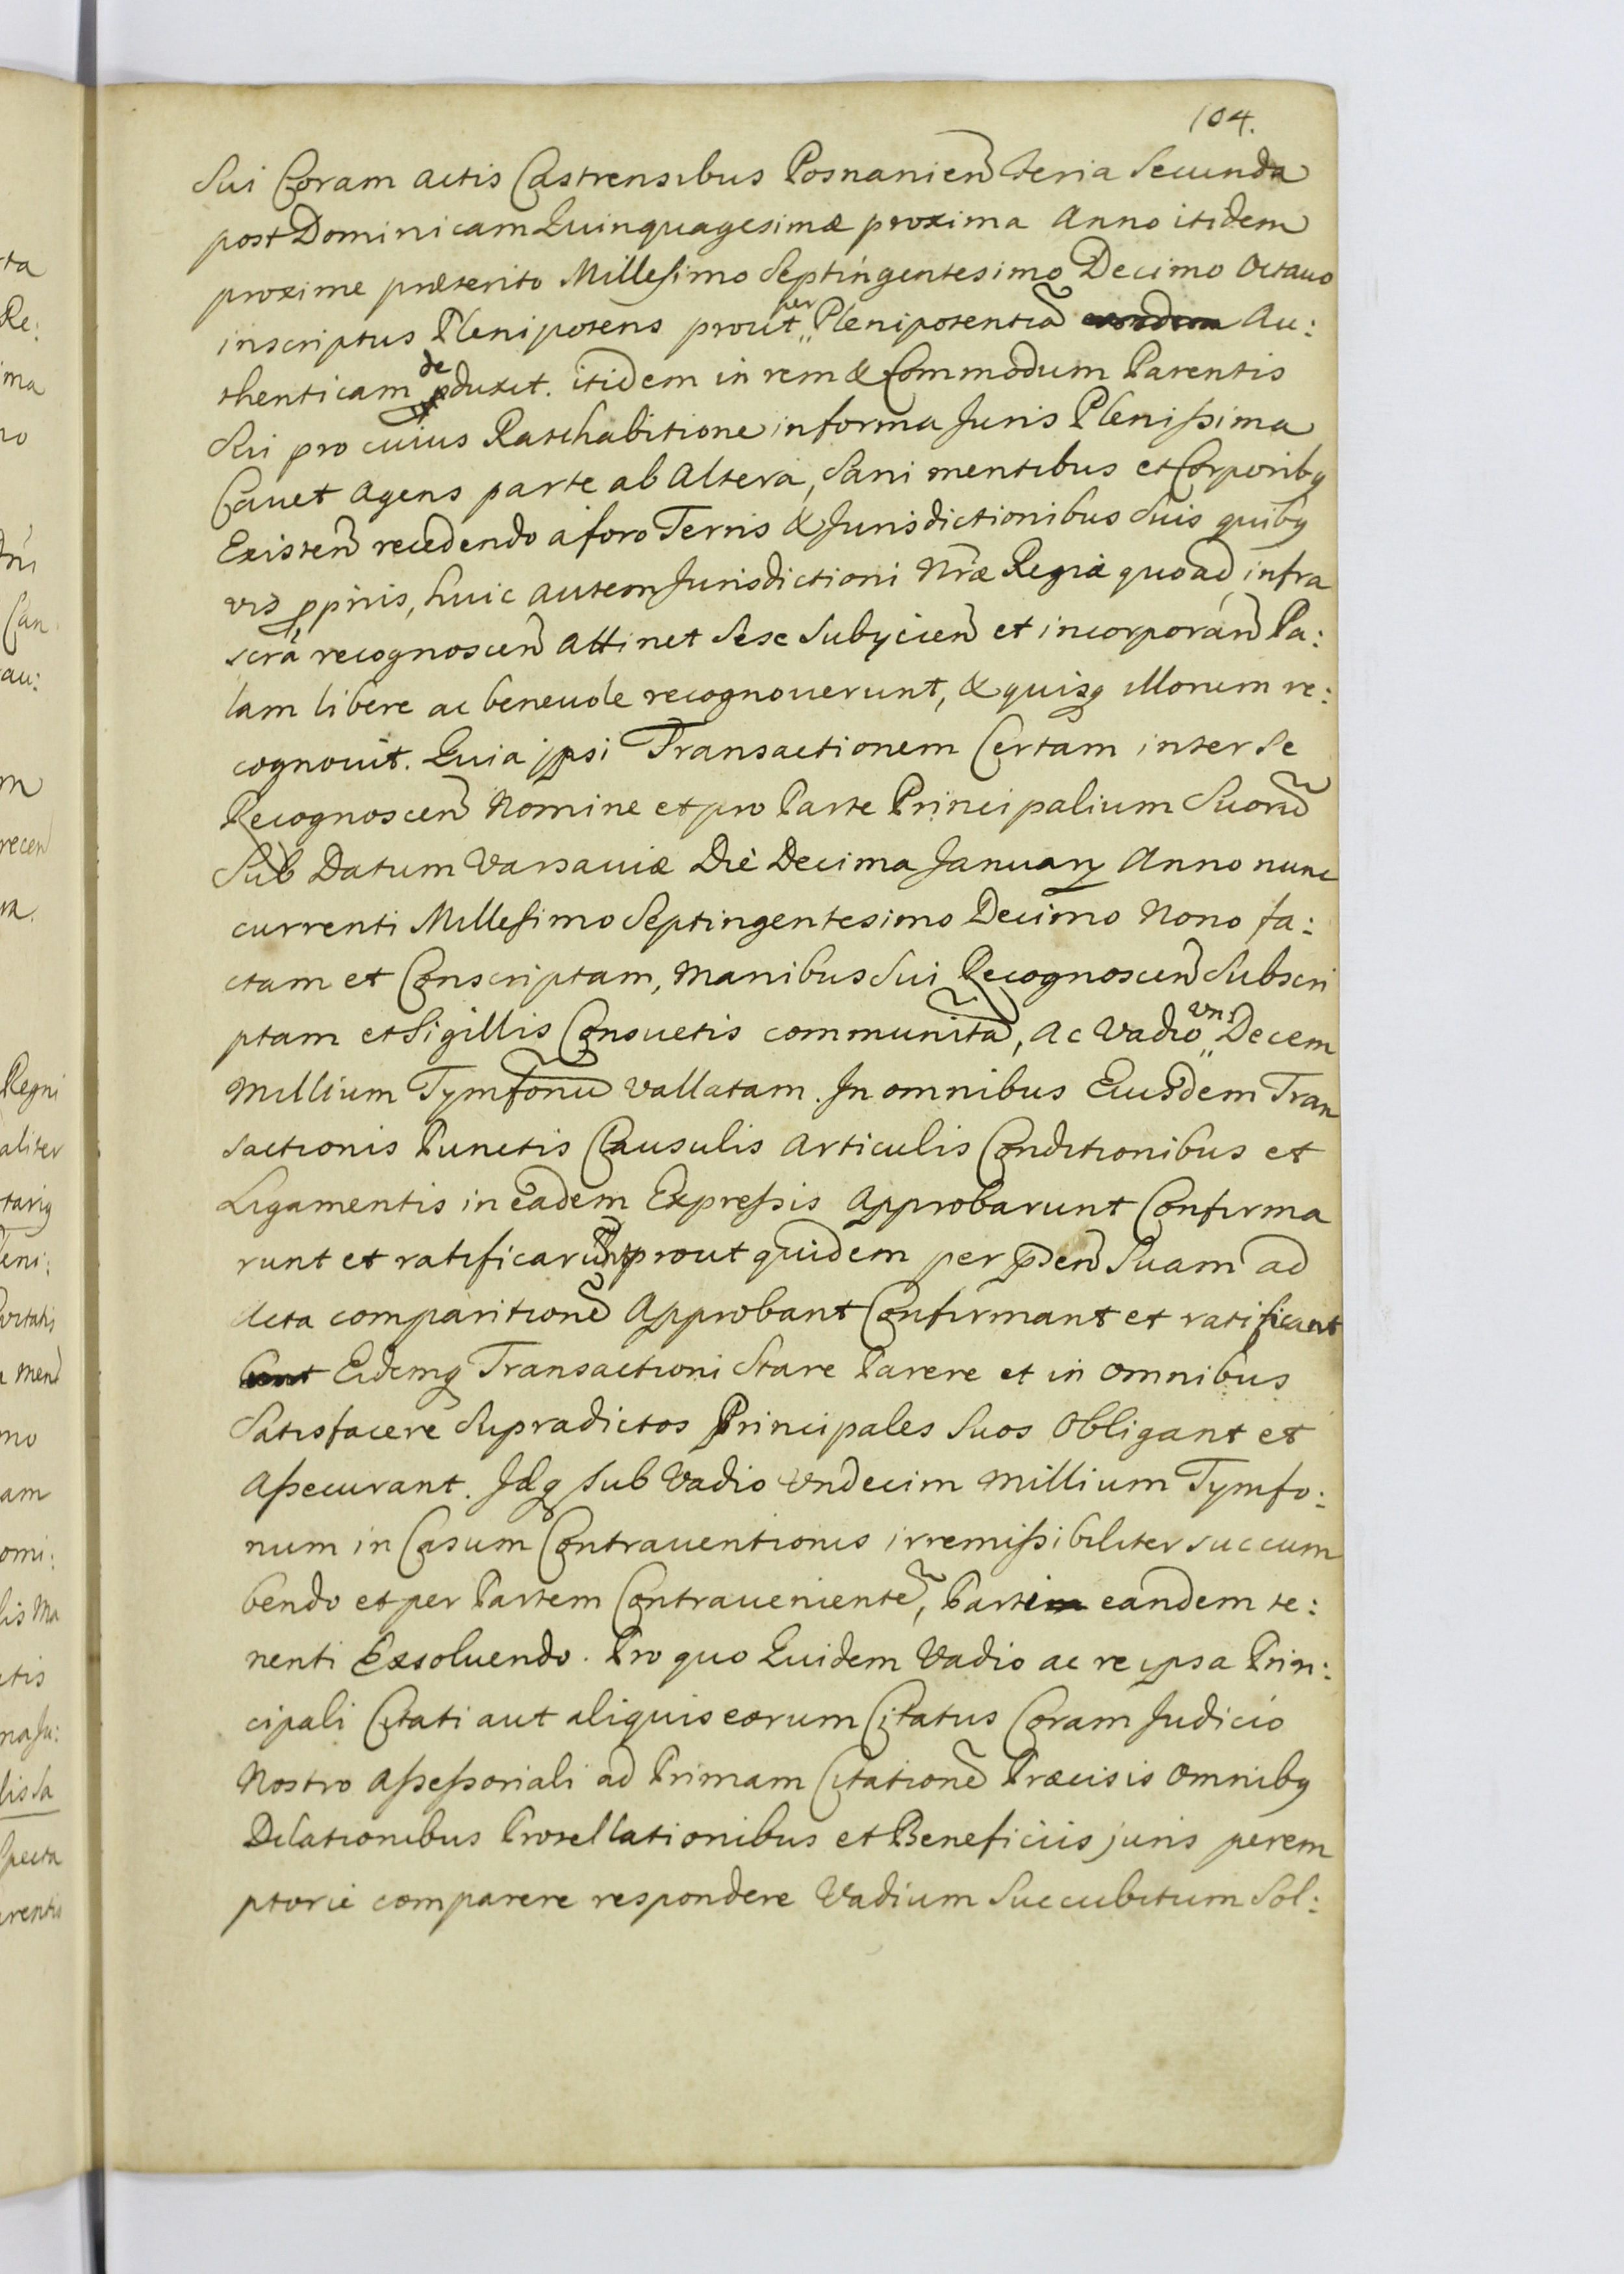 104.
Sui Coram actis Castrensibus Posnanien Feria Secunda
post Dominicam Quinquagesimæ proxima Anno itidem
proxime præterito Millesimo Septingentesimo Decimo Octavo
inscriptus Plenipotens prout per Plenipotentiã Au:
thenticam deduxit. itidem in rem & Commodum Parentis
Sui pro cuius Ratihabitione in forma Juris Plenissima
Cauet Agens parte ab Altera, Sani mentibus et Corporibq
Existen recedendo a foro Terris & Jurisdictionibus Suis quibq
vis ppriis, huic autem Jurisdictioni Nræ Regiæ quoad infra
scrã recognoscen attinet Sese Subycien et incorporan Pa:
lam libere ac beneuole recognouerunt, & quisq illorum re:
cognouit. Quia jpsi Transactionem Certam inter Se
Recognoscen Nomine et pro Parte Principalium Suorũ
Sub Datum Varsauiæ Die Decima January Anno nunc
currenti Millesimo Septingentesimo Decimo Nono fa:
ctam et Conscriptam, Manibus Sui Recognoscen Subscri
ptam et Sigillis Consuetis communitã, ac Vadio Vn Decem
Millium Tymfonũ vallatam. Jn omnibus Eiusdem Tran
sactionis Punctis Clausulis Articulis Conditionibus et
Ligamentis in eadem Expressis Approbarunt Confirma
runt et ratificarunt prout quidem per pñsen Suam ad
Acta comparitionẽ Approbant Confirmant et ratificant
Eidemq Transactioni Stare Parere et in omnibus
Satisfacere Supradictos Principales Suos Obligant et
Assecurant. Jdq sub Vadio Vndecim Millium Tymfo:
num in Casum Contrauentionis irremissibiliter succum
bendo et per Partem Contrauenientẽ, Parti eandem te:
nenti Exsoluendo. Pro quo Quidem Vadio ac re ipsa Prin:
cipali Citati aut aliquis eorum Citatus Coram Judicio
Nostro Assessoriali ad Primam Citationẽ Præcisis Omnibq
Dilationibus Protellationibus et Beneficiis juris perem
ptorie comparere respondere Vadium Succubitum Sol: